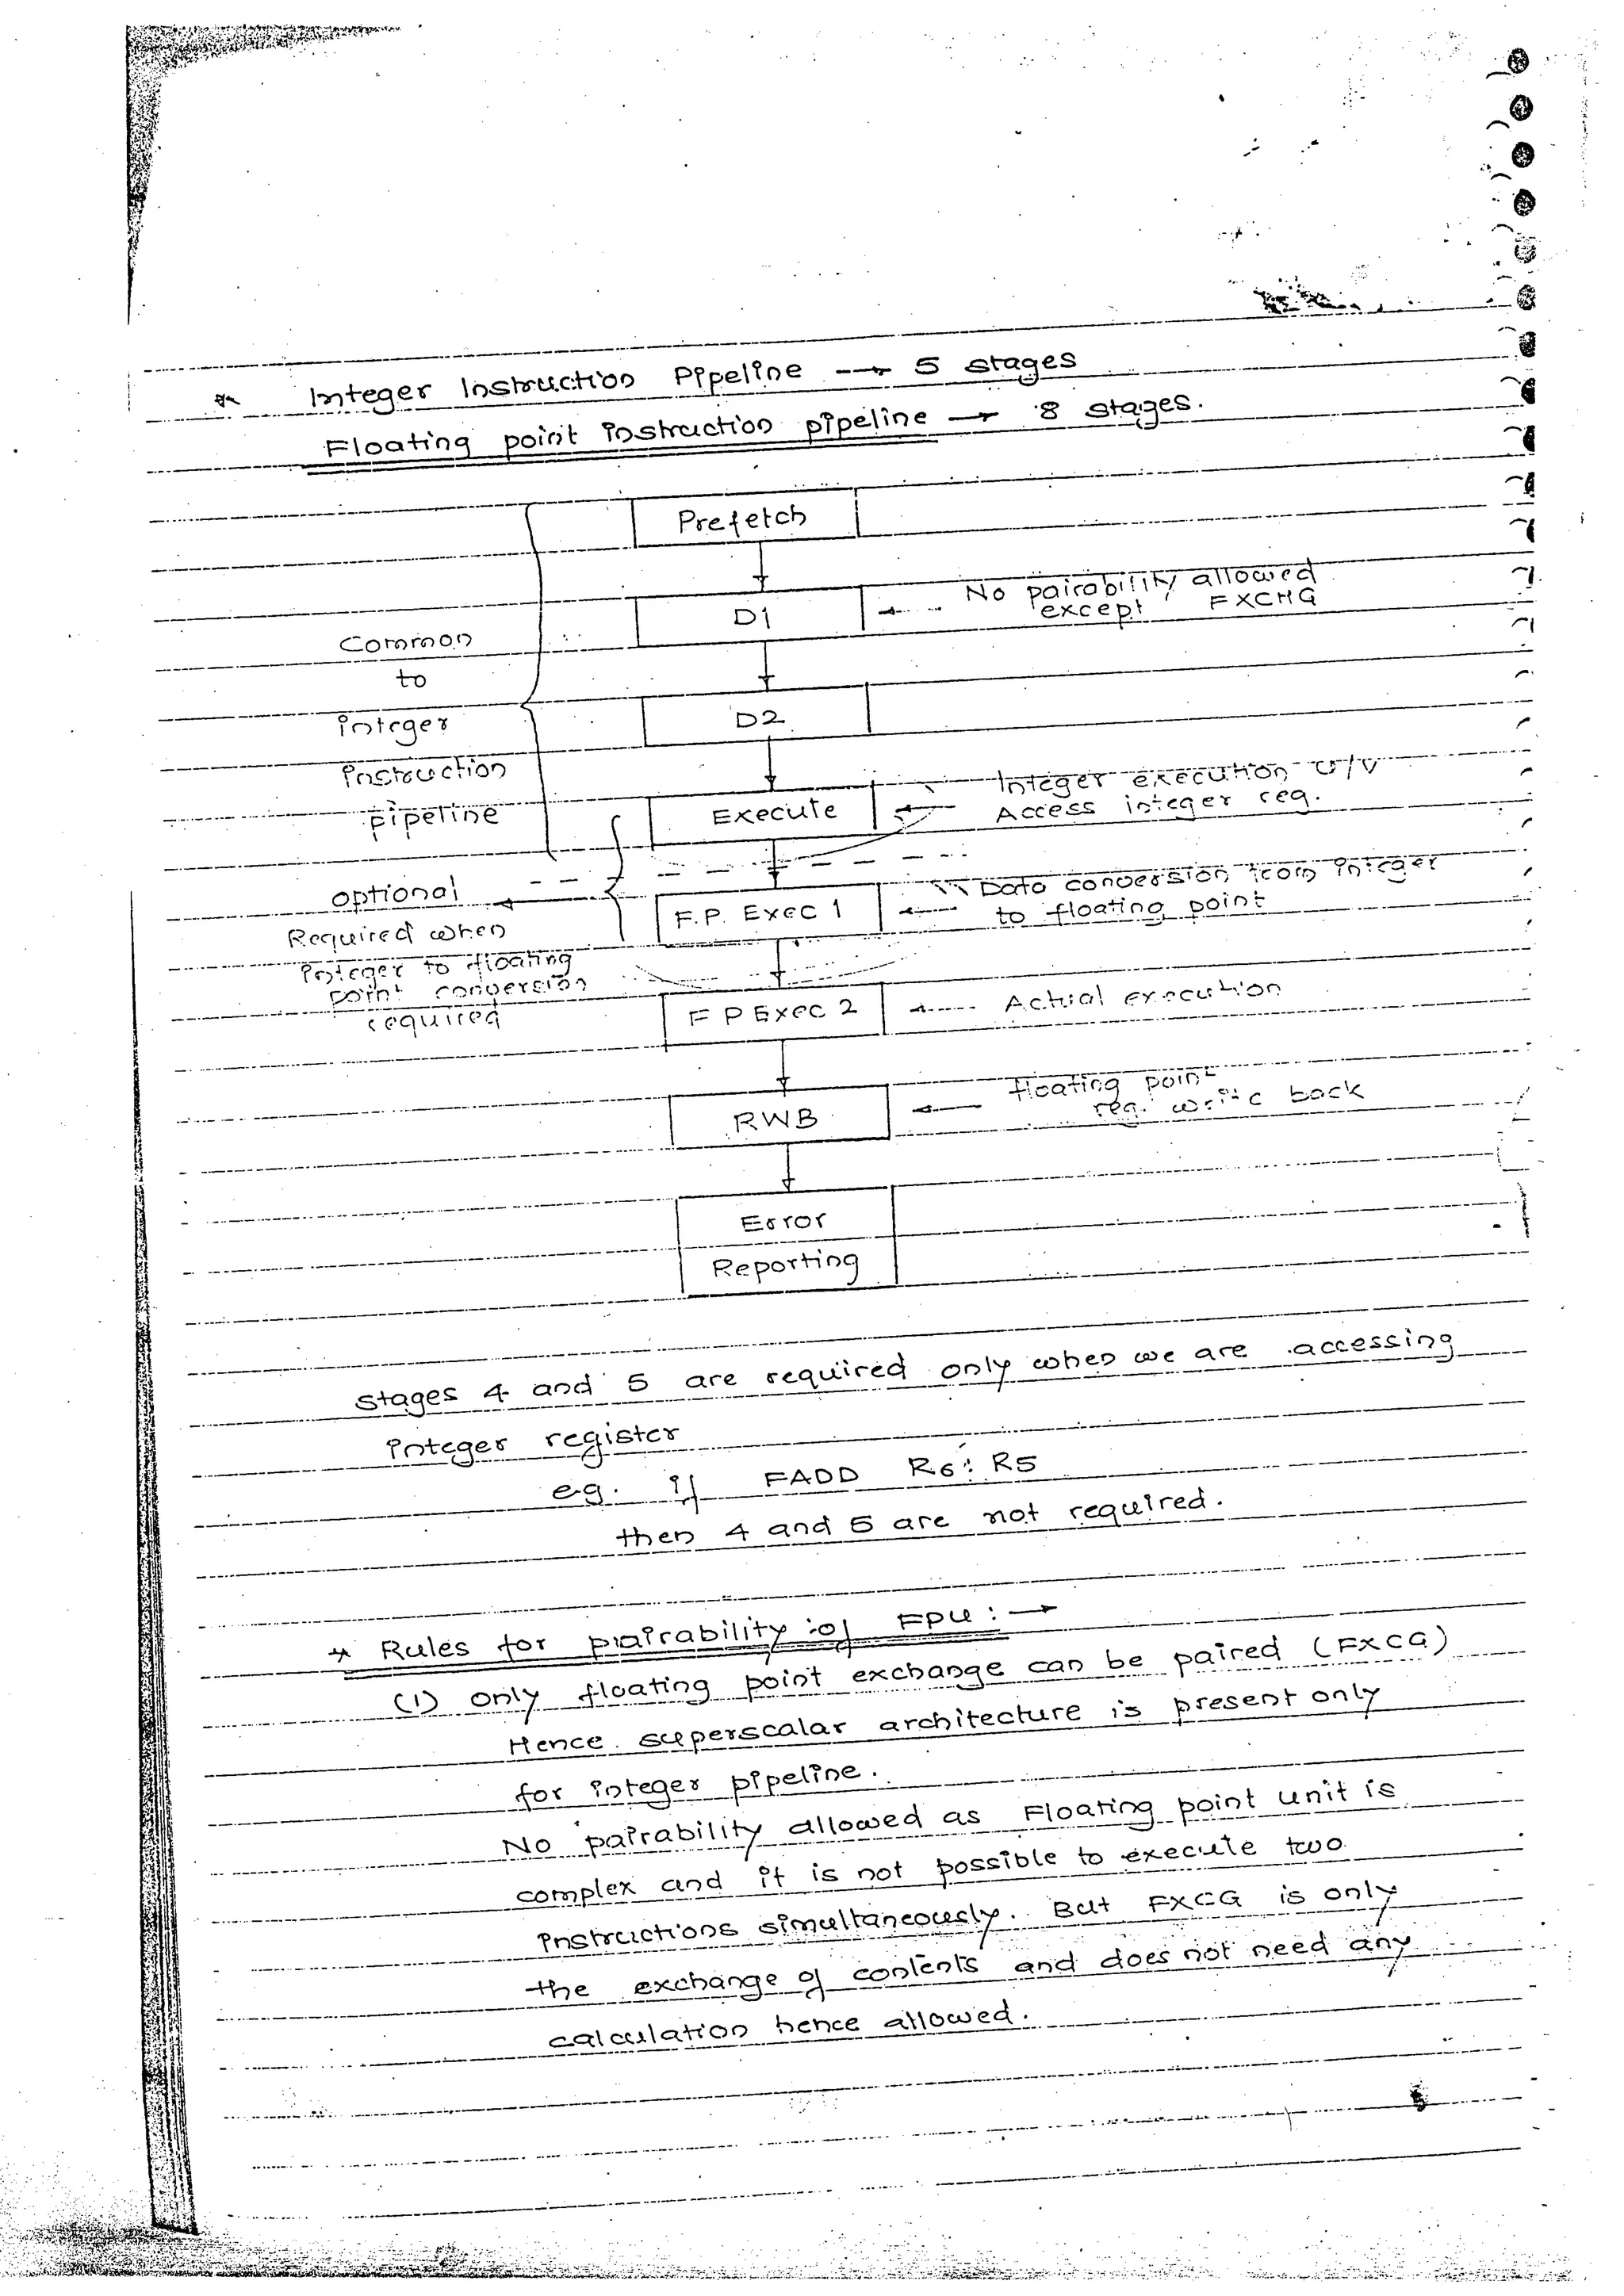 * Integer Instruction Pipeline → 5 stages
Floating point instruction pipeline → 8 stages.
Prefetch
D1
No pairability allowed
except FXCHG
Common
to
integer
instruction
pipeline
D2
Execute
Integer execution U/V
Access integer reg.
optional
Required when
integer to floating
point conversion
required
F.P. Exec 1
Data conversion from integer
to floating point
F P Exec 2
Actual execution
RWB
floating point
reg. write back
Error
Reporting
stages 4 and 5 are required only when we are accessing
integer register
e.g. if FADD R6 : R5
then 4 and 5 are not required.
* Rules for pairability of FPU : →
(1) only floating point exchange can be paired (FXCG)
Hence superscalar architecture is present only
for integer pipeline.
No pairability allowed as Floating point unit is
complex and it is not possible to execute two
instructions simultaneously. But FXCG is only
the exchange of contents and does not need any
calculation hence allowed.